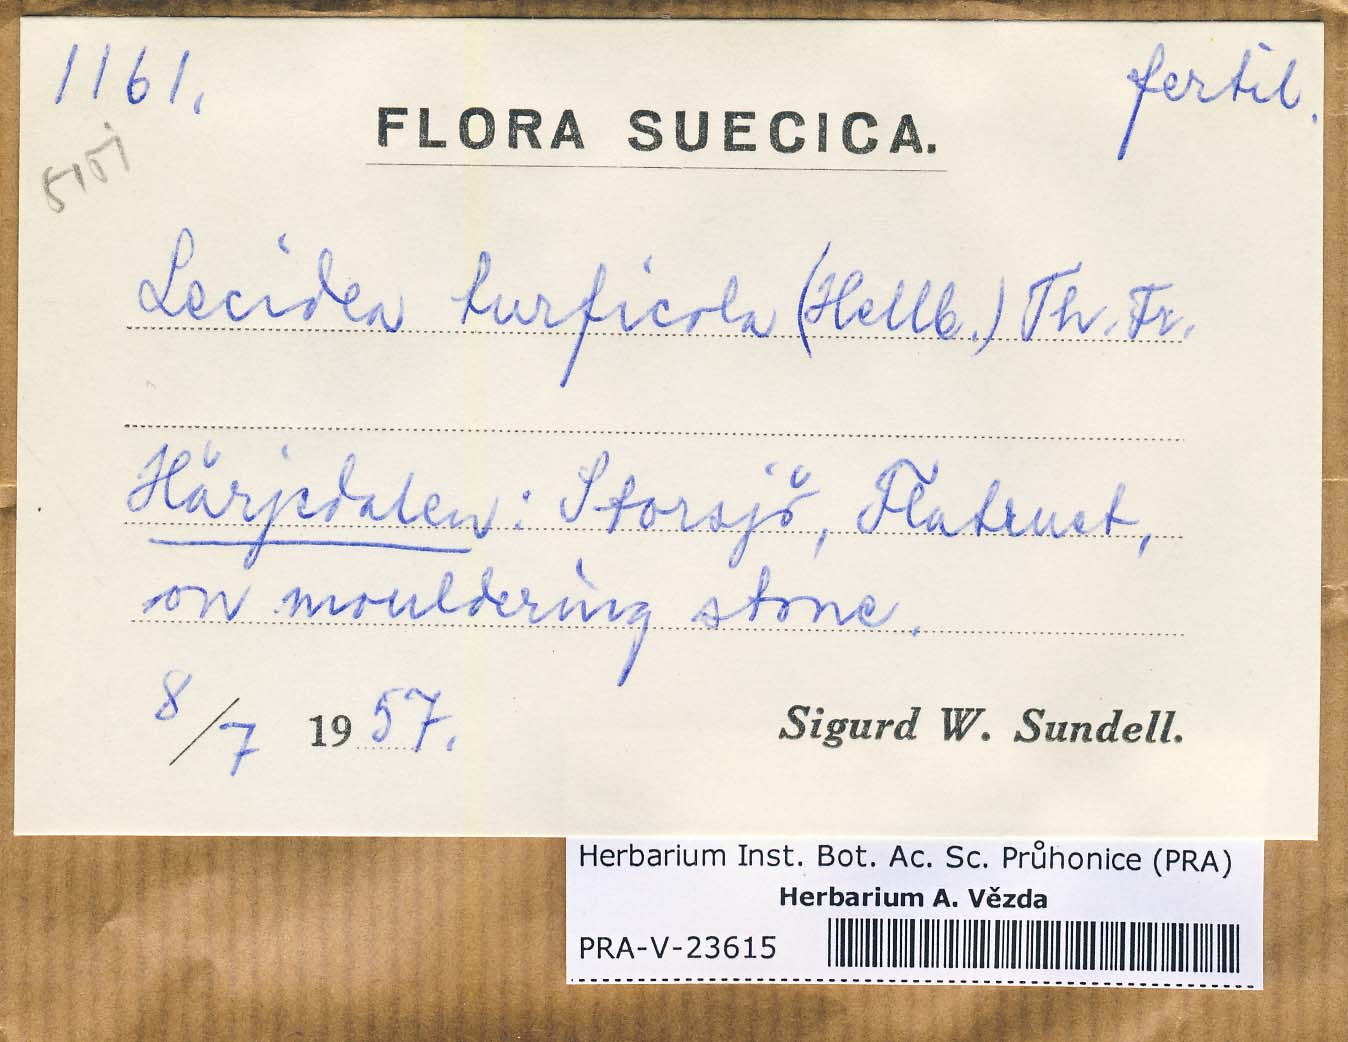 1161.
fertil.
FLORA SUECICA.
5151
Lecidea turficola (Hellb.) Th. Fr.
Härjedalen: Storsjö, Flatruet,
on mouldering stone.
8/7 1957.
Sigurd W. Sundell.
Herbarium Inst. Bot. Ac. Sc. Průhonice (PRA)
Herbarium A. Vězda
PRA-V-23615